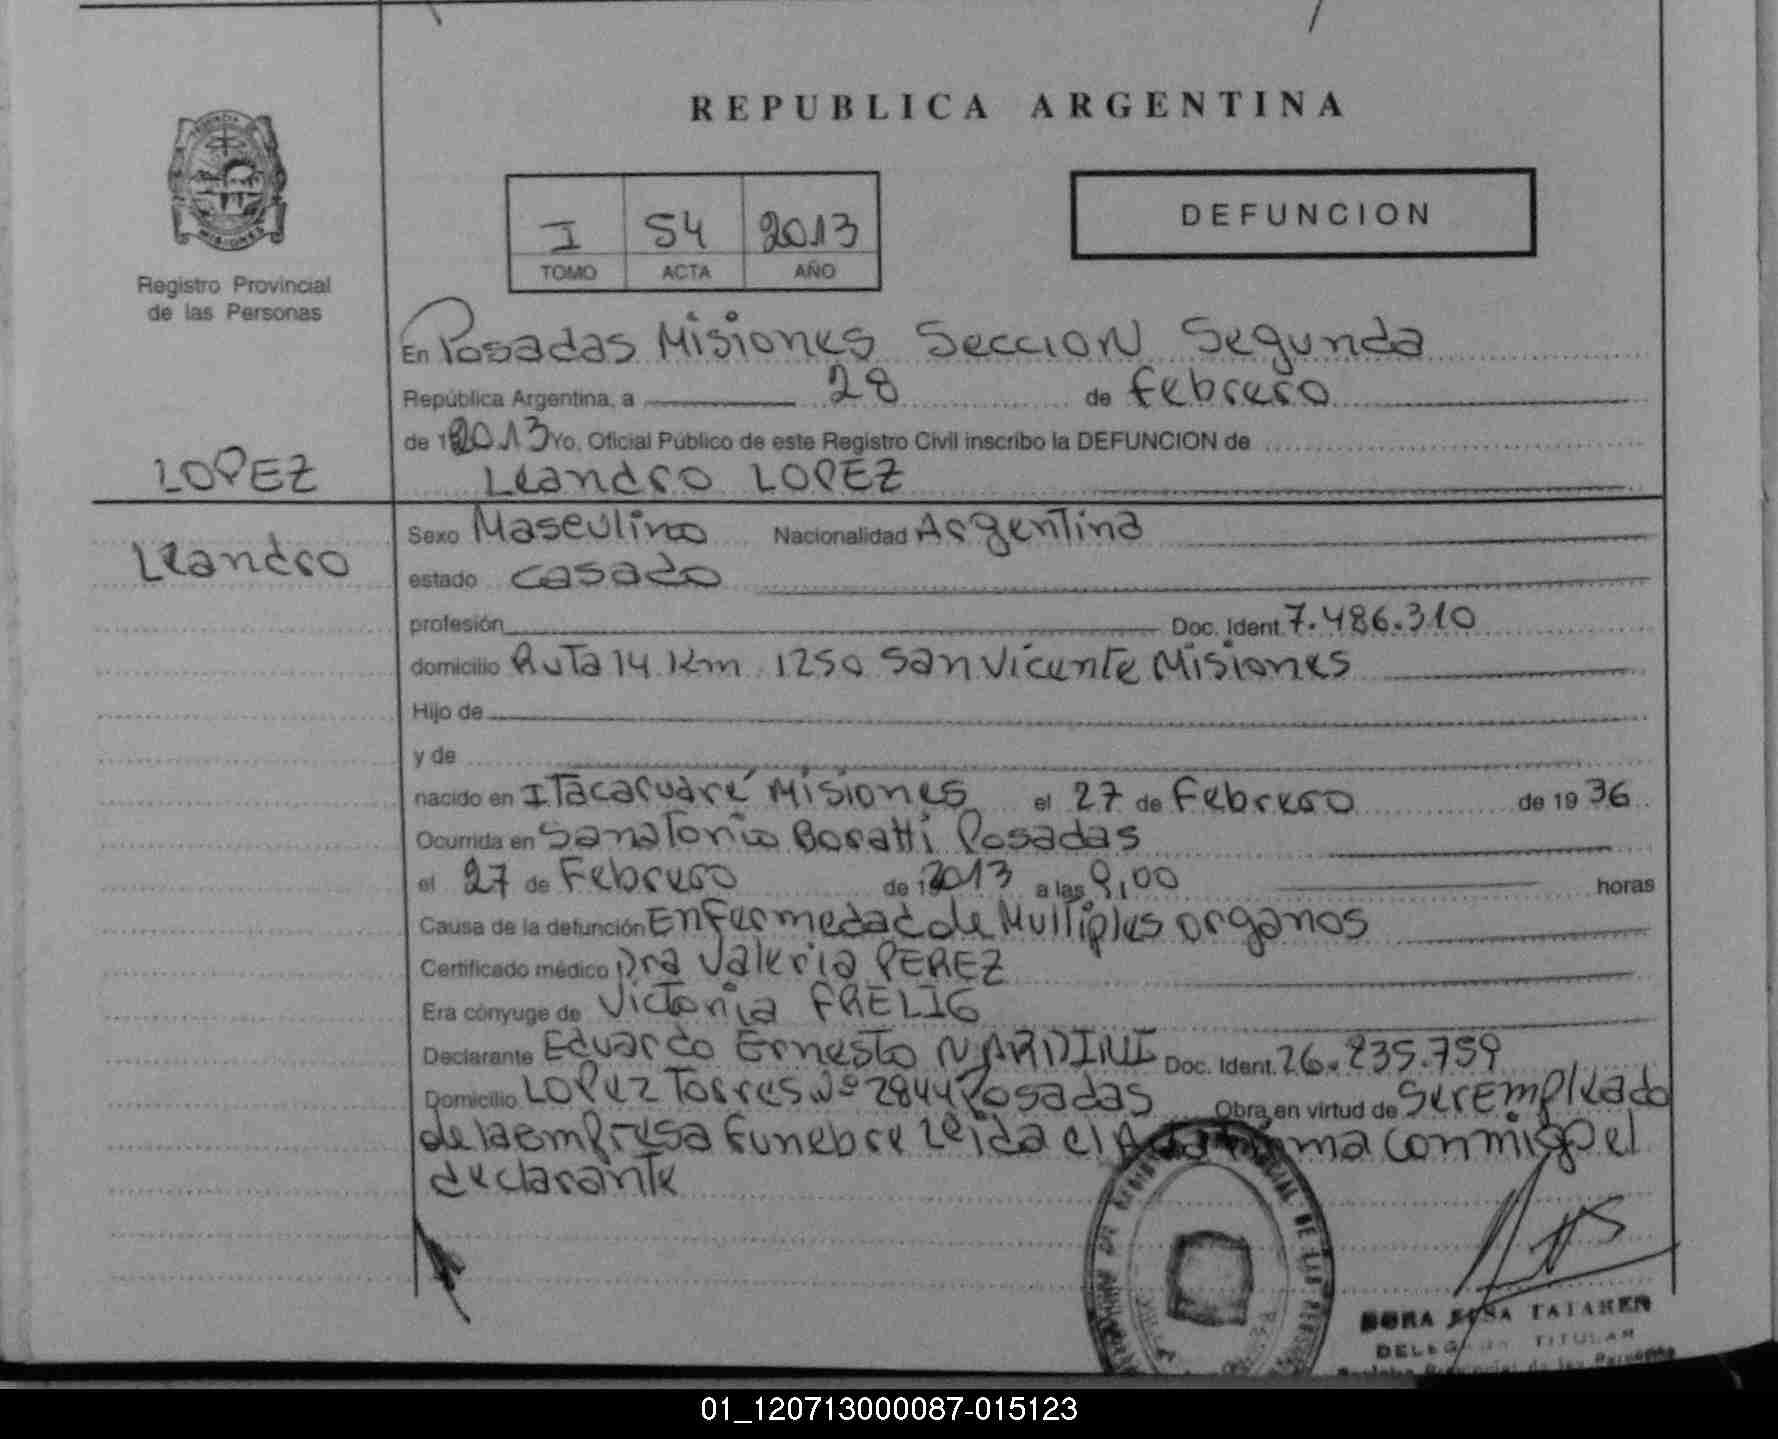 REPUBLICA ARGENTINA
DEFUNCION
I 54 2013
TOMO ACTA AÑO
Registro Provincial
de las Personas
En Posadas Misiones Seccion Segunda
República Argentina, a 28 de Febrero
de 2013 Yo, Oficial Público de este Registro Civil inscribo la DEFUNCION de
LOPEZ
Leandro LOPEZ
Leandro
Sexo Masculino Nacionalidad Argentina
estado casado
profesión Doc. Ident. 7.486.310
domicilio Ruta 14 Km 1250 San Vicente Misiones
Hijo de
y de
nacido en Itacaruaré Misiones el 27 de Febrero de 19 36
Ocurrida en Sanatorio Boratti Posadas
el 27 de Febrero de 2013 a las 9,00 horas
Causa de la defunción Enfermedad de Multiples organos
Certificado médico Dra Valeria PEREZ
Era cónyuge de Victoria FRELIG
Declarante Eduardo Ernesto NARDINI Doc. Ident. 26.235.759
Domicilio LOPEZ Torres Nº 2844 Posadas Obra en virtud de Ser Empleado
de la Empresa Funebre Leida el Acta firma conmigo el
declarante
TATAREN
TITULAR
01_120713000087-015123